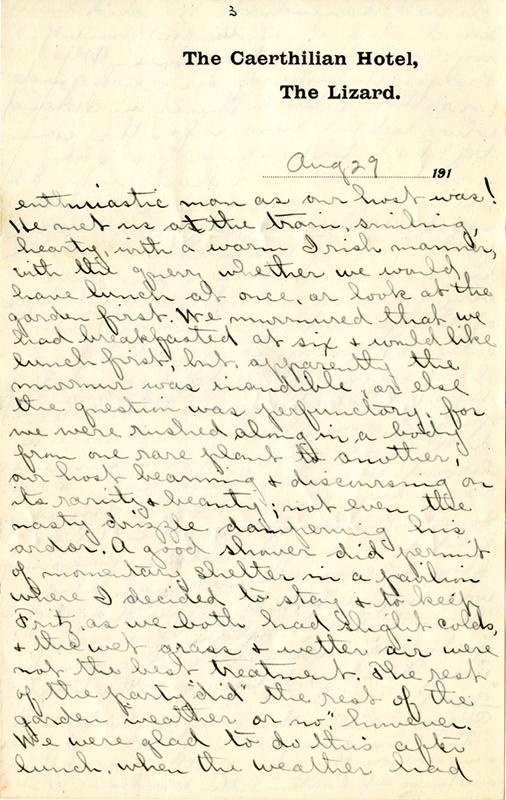 3
The Caerthilian Hotel,
The Lizard.
Aug 29 191
enthusiastic man as our host was!
He met us at the train, smiling,
hearty, with a warm Irish manner,
with the query whether we would
have lunch at once, or look at the
garden first. We murmured that we
had breakfasted at six & would like
lunch first, but, apparently the
murmur was inaudible, or else
the question was perfunctory, for
we were rushed along in a body
from one rare plant to another,
our host beaming & discoursing on
its rarity & beauty; not even the
nasty drizzle dampening his
ardor. A good shower did permit
of momentary shelter in a pavilion
where I decided to stay & to keep
Fritz, as we both had slight colds,
& the wet grass & wetter air were
not the best treatment. The rest
of the party "did" the rest of the
garden "weather or no", however.
We were glad to do this after
lunch, when the weather had